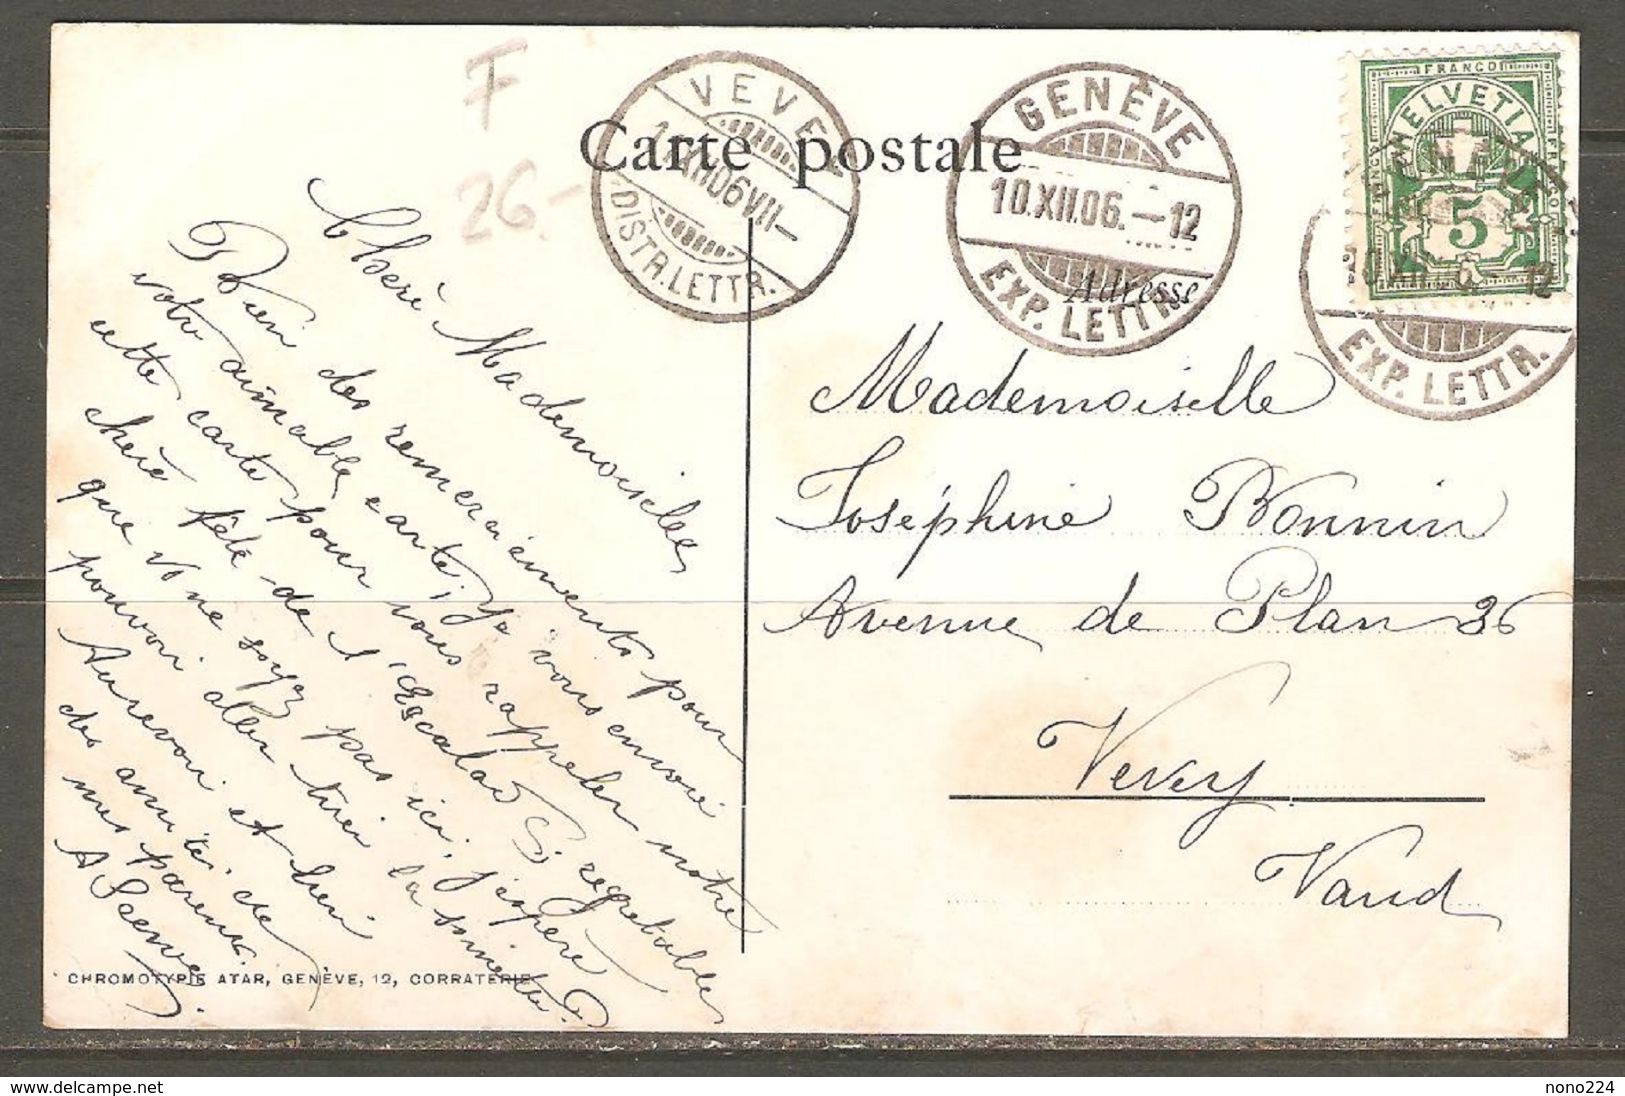 F
26.-
Carte postale
VEVEY
XII 06 VII-
DISTR. LETTR.
GENÈVE
10.XII.06.-12
EXP. LETTR.
FRANCO
HELVETIA
5
12
EXP. LETTR.
Adresse
Mademoiselle
Joséphine Bonnin
Avenue de Plan 36
Vevey
Vaud
Cherè Mademoiselle,
Bien des remerciements pour
votre aimable carte, je vous envoie
cette carte pour vous rappeler notre
cherè fête de l'Escalad
regretable
que vs ne soyez pas ici, j'espère
pouvoir aller tirer la
Aurevoir et bien
des amitiés de
mes parents.
A
CHROMOTYPIE ATAR, GENÈVE, 12, CORRATERIE
nono224